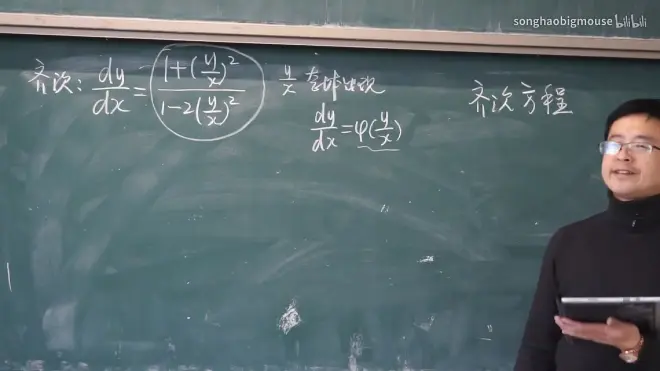 songhaobigmouse bilibili
齐次: dy/dx = (1+(y/x)²)/(1-2(y/x)²) y/x 整体出现 齐次方程
dy/dx = φ(y/x)